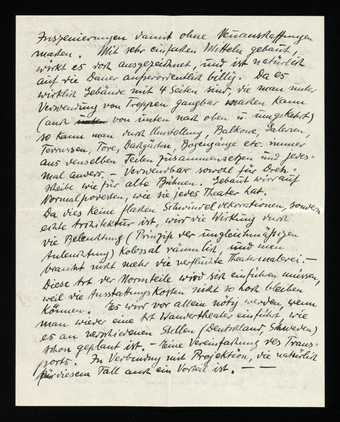 Inszenierungen damit ohne Neuanschaffungen
machen. Mit sehr einfachen Mitteln gebaut,
wirkt es doch ausgezeichnet, und ist natürlich
auf die Dauer ausserordentlich billig. Da es
wirklich Gebäude mit 4 Seiten sind, die man unter
Verwendung von Treppen gangbar machen kann
(auch von unten nach oben u. umgekehrt)
so kann man durch Umstellung, Balkone, Galerien,
Terrassen, Tore, Bogengänge etc. immer
aus denselben Teilen zusammensetzen und jedes-
mal anders. – Verwendbar sowohl für Dreh-
scheibe wie für alte Bühnen. Gebaut wird auf
Normalpodesten, wie sie jedes Theater hat.
Da dies keine flachen Schwindeldekorationen, sondern
echte Architektur ist, wird die Wirkung durch
die Beleuchtung (Prinzip der ungleichmässigen
Ausleuchtung) kolossal räumlich, und man
braucht nicht mehr die verfluchte Theatermalerei. –
Diese Art der Normteile wird sich einführen müssen,
weil die Ausstattungskosten nicht so hoch bleiben
können. Es wird vor allem nötig werden wenn
man wieder eine Art Wandertheater einführt, wie
es an verschiedenen Stellen (Deutschland, Schweden)
schon geplant ist. – Eine Vereinfachung des Trans-
ports. In Verbindung mit Projektion, die natürlich
für diesen Fall auch ein Vorteil ist. – –